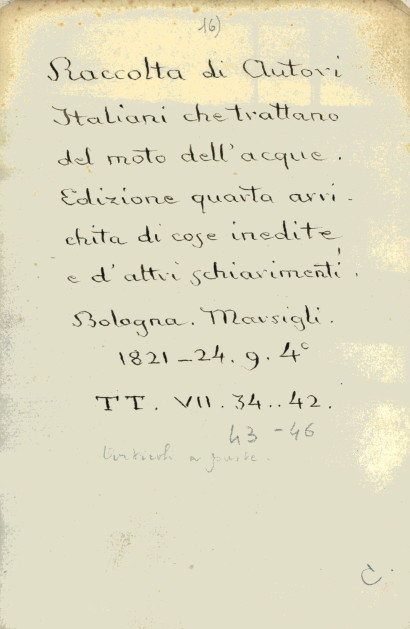 16)
Raccolta di Autori
Italiani che trattano
del moto dell'acque.
Edizione quarta arri-
chita di cose inedite,
e d'altri schiarimenti.
Bologna. Marsigli.
1821-24. 9. 4°
TT. VII. 34..42.
43-46
C.